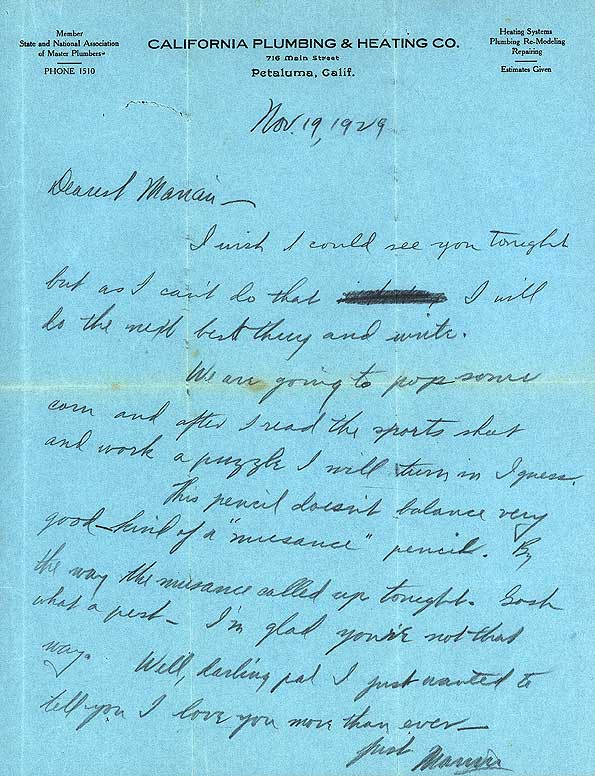 Member
State and National Association
of Master Plumbers
PHONE 1510
CALIFORNIA PLUMBING & HEATING CO.
716 Main Street
Petaluma, Calif.
Heating Systems
Plumbing Re-Modeling
Repairing
Estimates Given
Nov. 19, 1929
Dearest
I wish I could see you tonight
but as I can't do that I will
do the next best thing and write.
We are going to pop some
corn and after I read the sports sheet
and work a puzzle I will turn in I guess.
This pencil doesn't balance very
good - kind of a "nuisance" pencil. By
the way the nuisance called up tonight. Gosh
what a pest - I'm glad you're not that
way. Well, darling pal I just wanted to
tell you I love you more than ever -
just